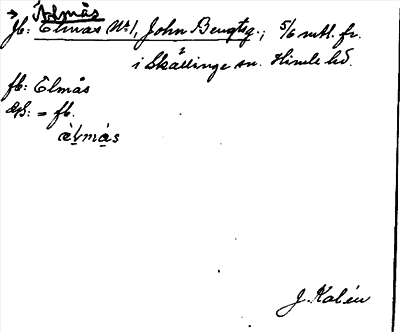 → Älmås
fb: Elmås No 1, John Bengtsg.; 5/6 mtl. fr.
i Skällinge sn. Himle hd.
fb: Elmås
äb: = fb.
älmås
J. Kalén